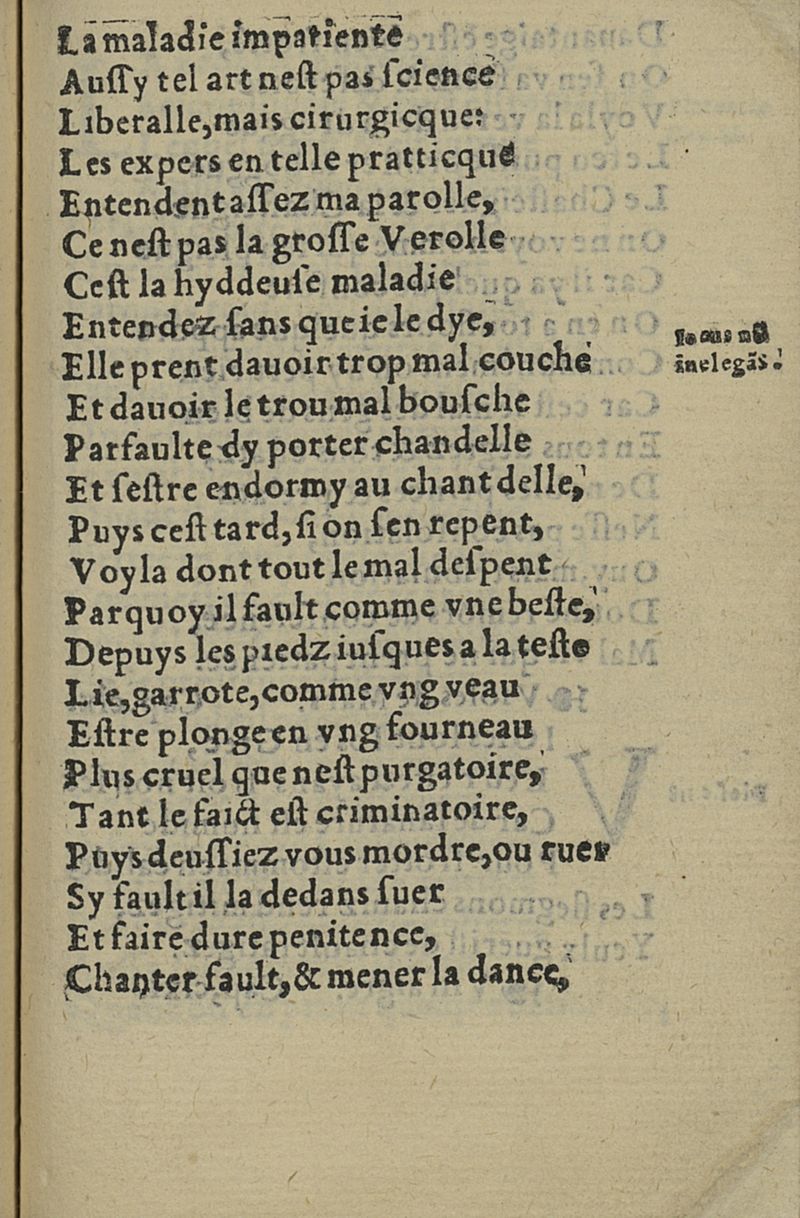 La maladie impatiente
Auſſy tel art neſt pas ſcience
Liberalle,mais cirurgicque:
Les expers en telle pratticque
Entendent aſſez ma parolle,
Ce neſt pas la groſſe Verolle
Ceſt la hyddeuſe maladie
Entendez ſans que ie le dye,
Elle prent dauoir trop mal couche
Et dauoir le trou mal bouſche
Par faulte dy porter chandelle
Et ſeſtre endormy au chant delle,
Puys ceſt tard, ſi on ſen repent,
Voyla dont tout le mal deſpent
Parquoy il fault comme vne beſte,
Depuys les piedz iuſques a la teſte
Lie,garrote,comme vng veau
Eſtre plonge en vng fourneau
Plus cruel que neſt purgatoire,
Tant le faict eſt criminatoire,
Puys deuſſiez vous mordre,ou ruer
Sy fault il la dedans ſuer
Et faire dure penitence,
Chanter fault,& mener la dance,
inelegãs.